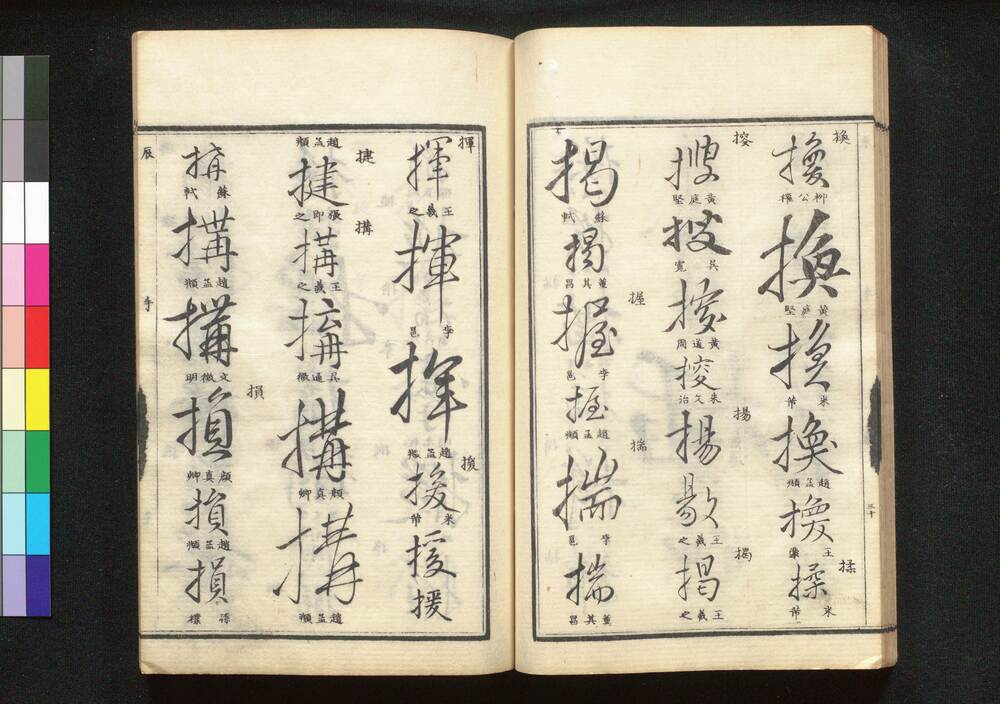 三十
換
換 柳公權
換 黃庭堅
換 米芾
換 趙孟頫
換 王
揉
揉 米芾
搜
搜 黃庭堅
搜 吳寬
搜 黃道周
搜 朱文治
揚
揚
敭 王羲之
揭
揭 王羲之
揭 蘇軾
揭 董其昌
握
握 李邕
握 趙孟頫
揣
揣 李邕
揣 董其昌
揮
揮 王羲之
揮 李邕
揮 趙孟頫
援
援 米芾
援
援 趙孟頫
捷
捷 張即之
搆
搆 王羲之
搆 吳通微
搆 顏真卿
搆 趙孟頫
搆 蘇軾
搆 趙孟頫
搆 文徵明
損
損 顏真卿
損 趙孟頫
損
辰
手